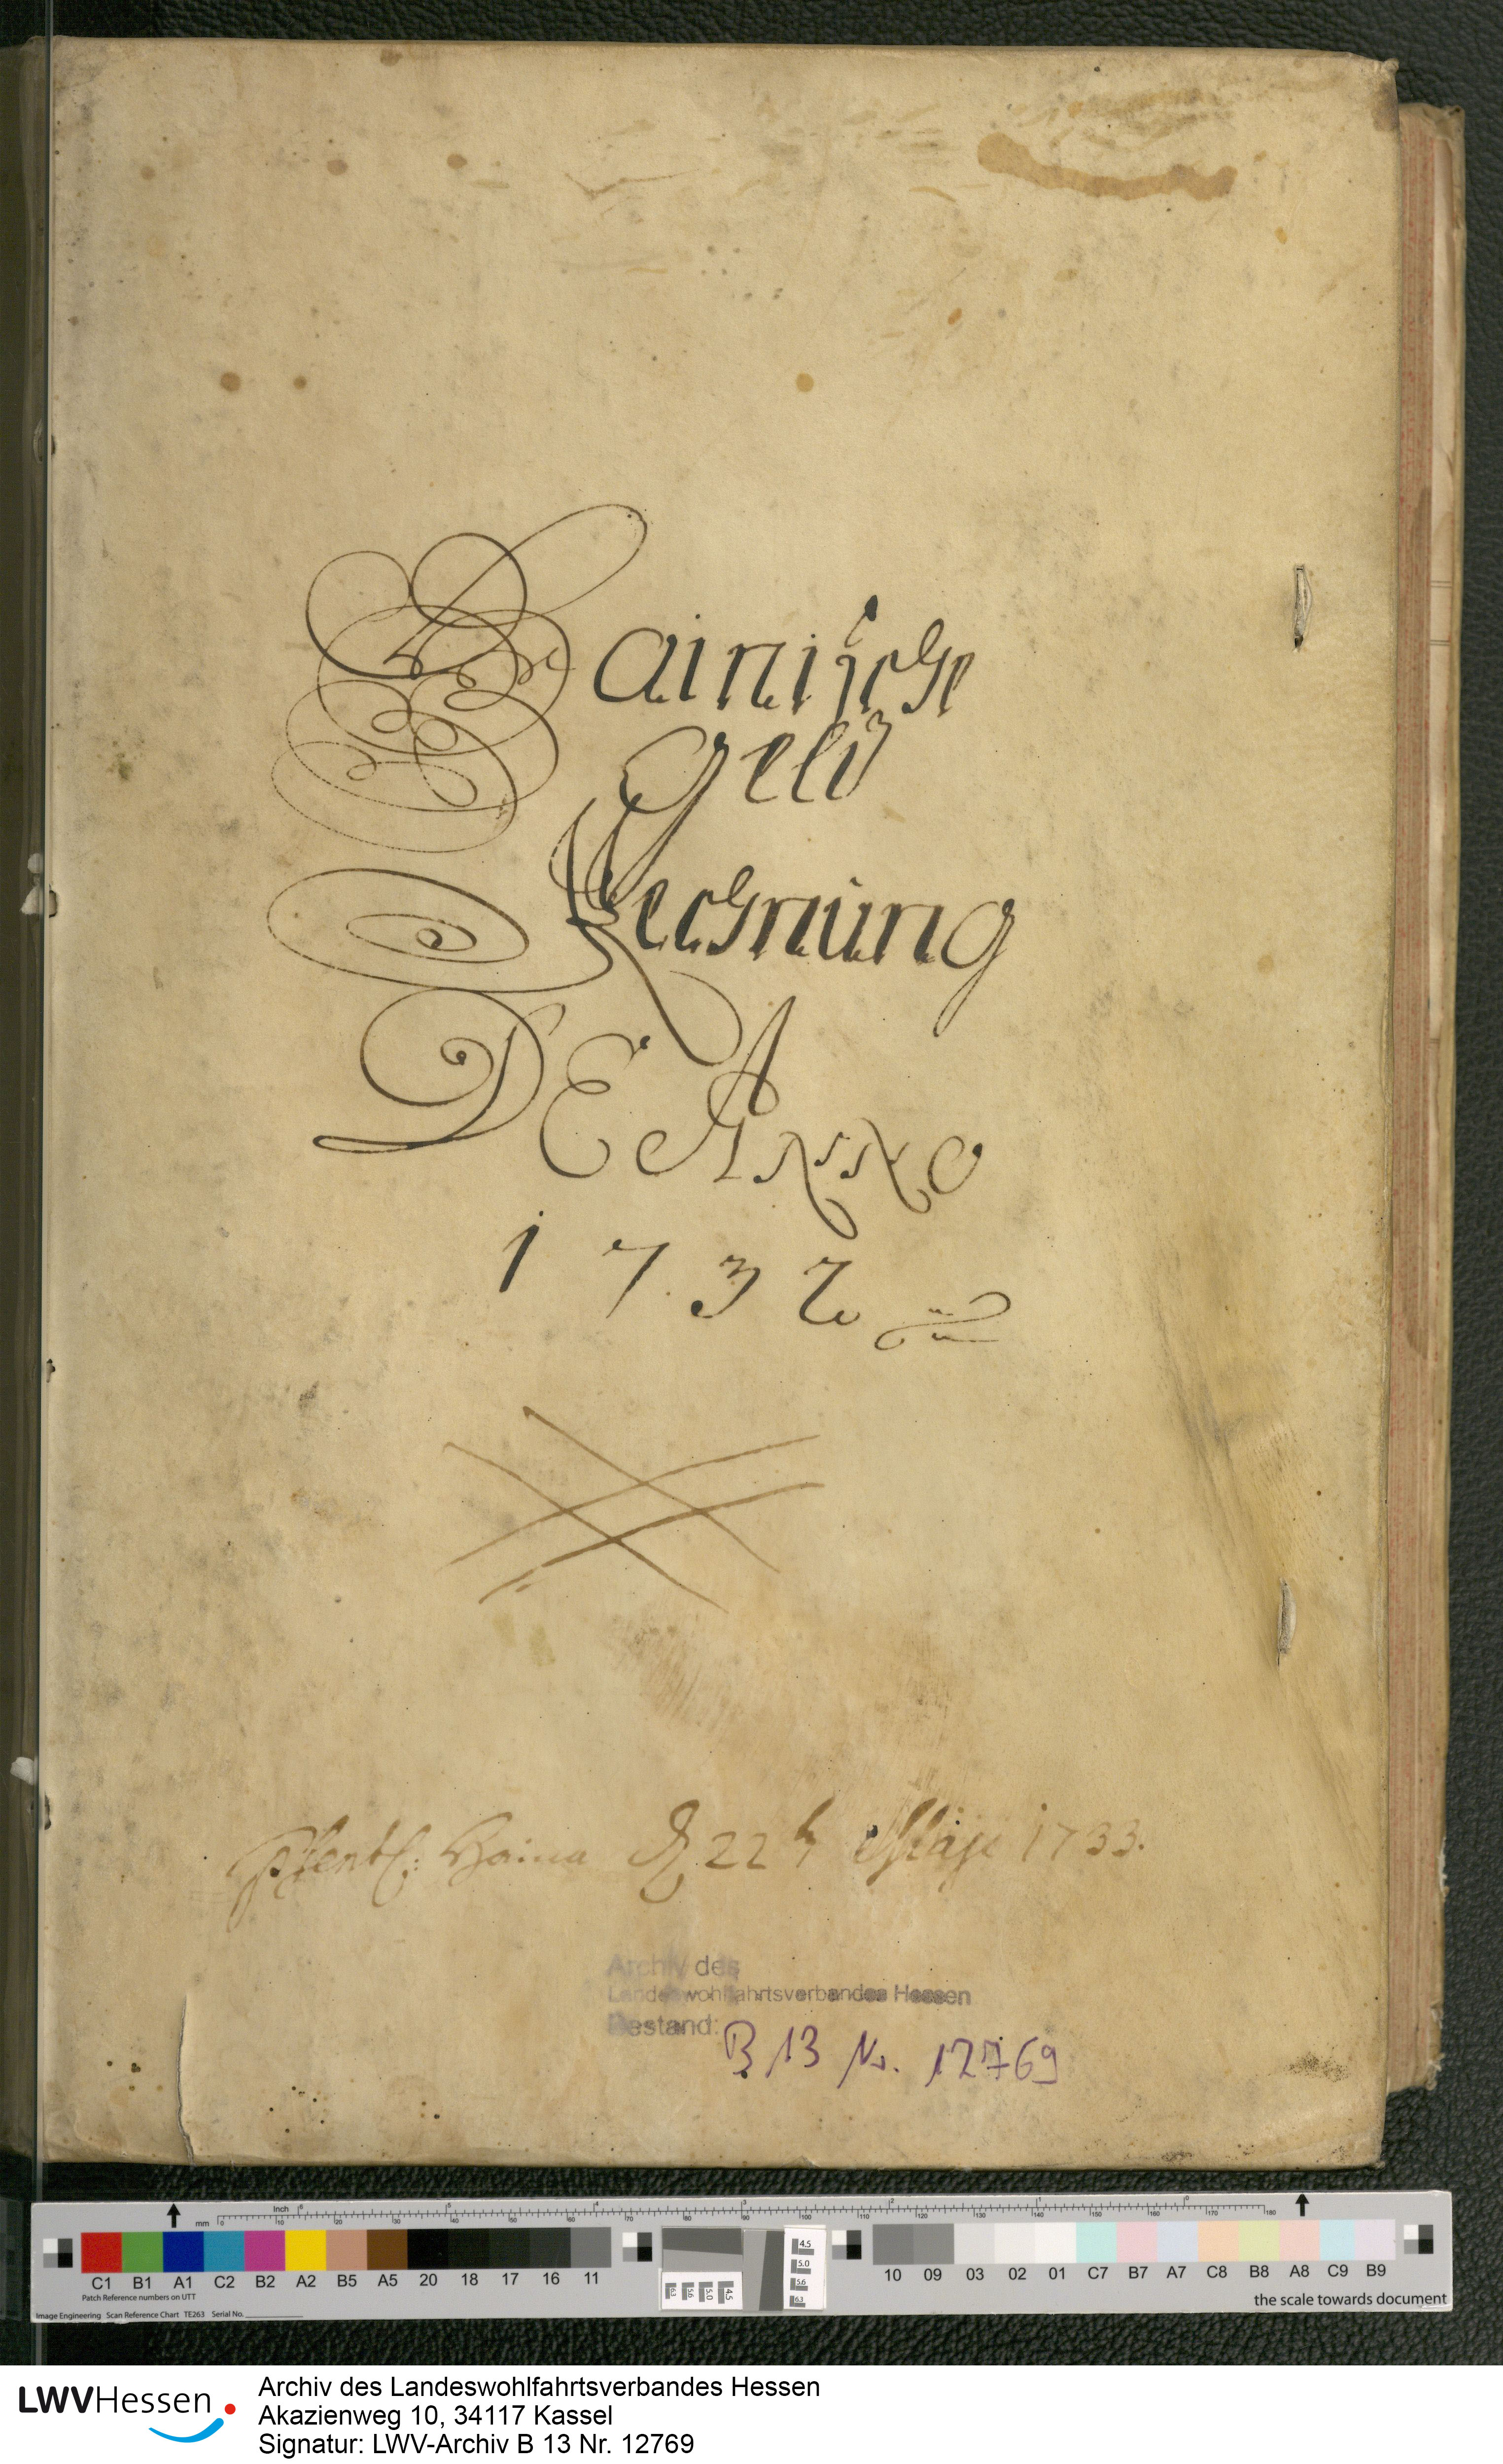 Hainische
Geld
Rechnung
DE ANNO
1732
Haina 22 Maji 1733.
Archiv des
Landeswohlfahrtsverbandes Hessen
Bestand: B 13 Nr. 12769
Inch
mm
C1 B1 A1 C2 B2 A2 B5 A5 20 18 17 16 11
10 09 03 02 01 C7 B7 A7 C8 B8 A8 C9 B9
Patch Reference numbers on UTT
the scale towards document
Image Engineering Scan Reference Chart TE263 Serial No.
LWVHessen
Archiv des Landeswohlfahrtsverbandes Hessen
Akazienweg 10, 34117 Kassel
Signatur: LWV-Archiv B 13 Nr. 12769